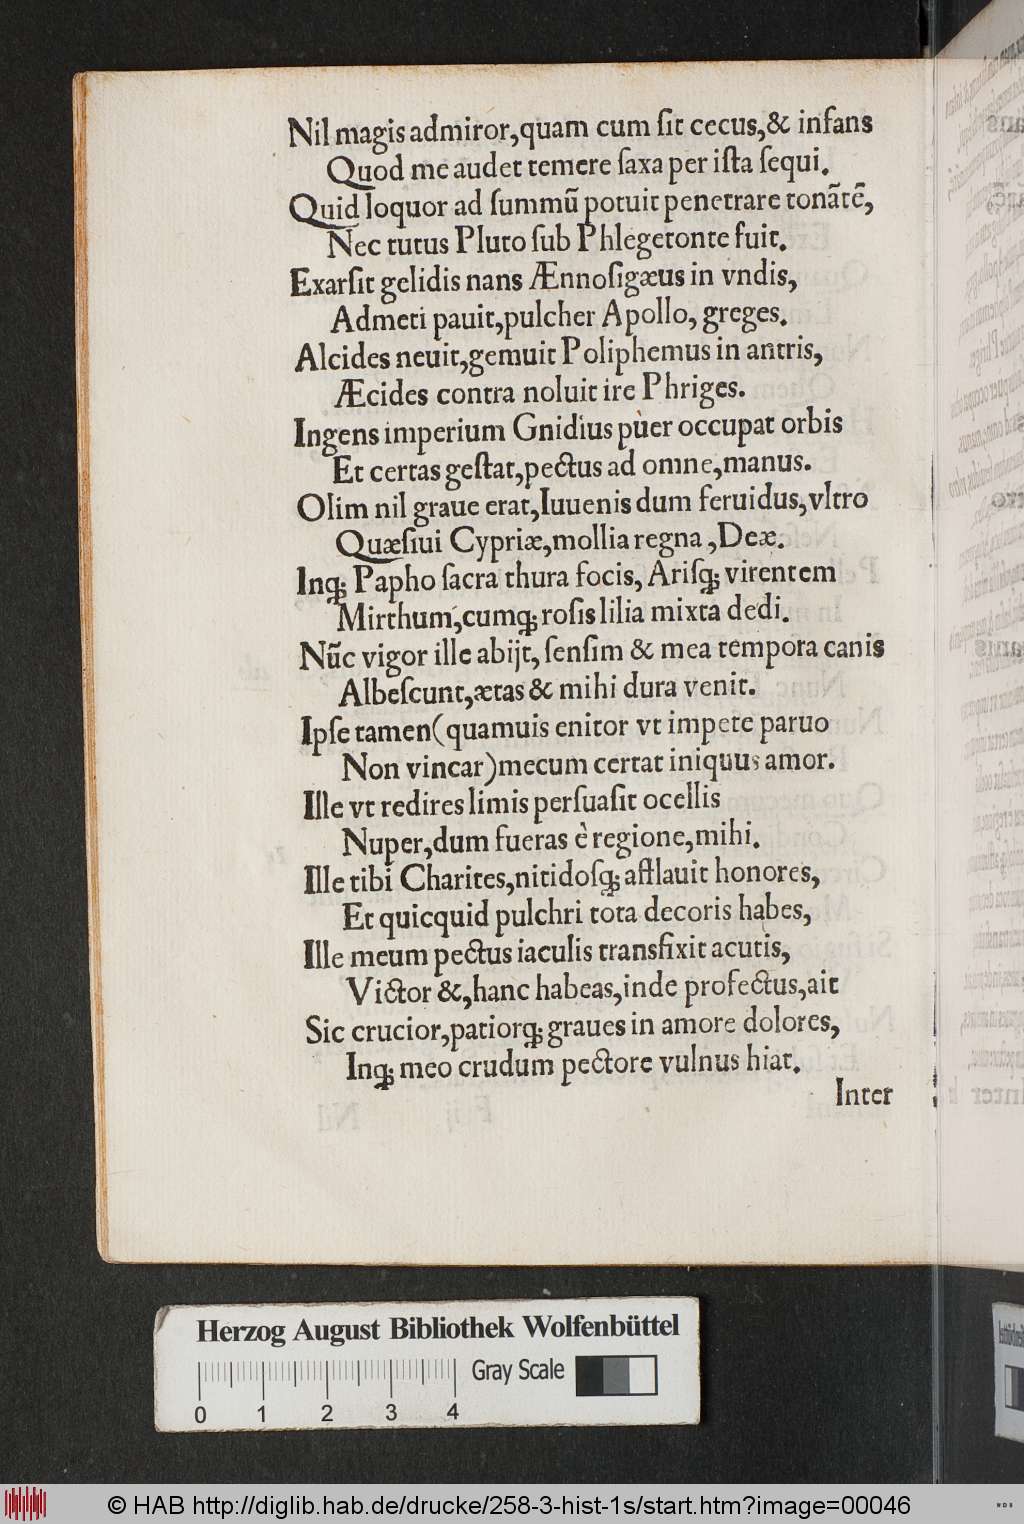 Nil magis admiror,quam cum ſit cecus,& infans
Quod me audet temere ſaxa per iſta ſequi.
Quid loquor ad ſummũ potuit penetrare tonãtẽ,
Nec tutus Pluto ſub Phlegetonte fuit.
Exarſit gelidis nans Ænnoſigæus in vndis,
Admeti pauit,pulcher Apollo, greges.
Alcides neuit,gemuit Poliphemus in antris,
Æcides contra noluit ire Phriges.
Ingens imperium Gnidius puer occupat orbis
Et certas geſtat,pectus ad omne,manus.
Olim nil graue erat,Iuuenis dum feruidus,vltro
Quæſiui Cypriæ,mollia regna ,Deæ.
Inq; Papho ſacra thura focis, Ariſq; virentem
Mirthum,cumq; roſis lilia mixta dedi.
Nũc vigor ille abijt, ſenſim & mea tempora canis
Albeſcunt,ætas & mihi dura venit.
Ipſe tamen(quamuis enitor vt impete paruo
Non vincar)mecum certat iniquus amor.
Ille vt redires limis perſuaſit ocellis
Nuper,dum fueras è regione,mihi.
Ille tibi Charites,nitidoſq; afflauit honores,
Et quicquid pulchri tota decoris habes,
Ille meum pectus iaculis transfixit acutis,
Victor &,hanc habeas,inde profectus,ait
Sic crucior,patiorq; graues in amore dolores,
Inq; meo crudum pectore vulnus hiat.
Inter
Herzog August Bibliothek Wolfenbüttel
Gray Scale
0 1 2 3 4
© HAB http://diglib.hab.de/drucke/258-3-hist-1s/start.htm?image=00046